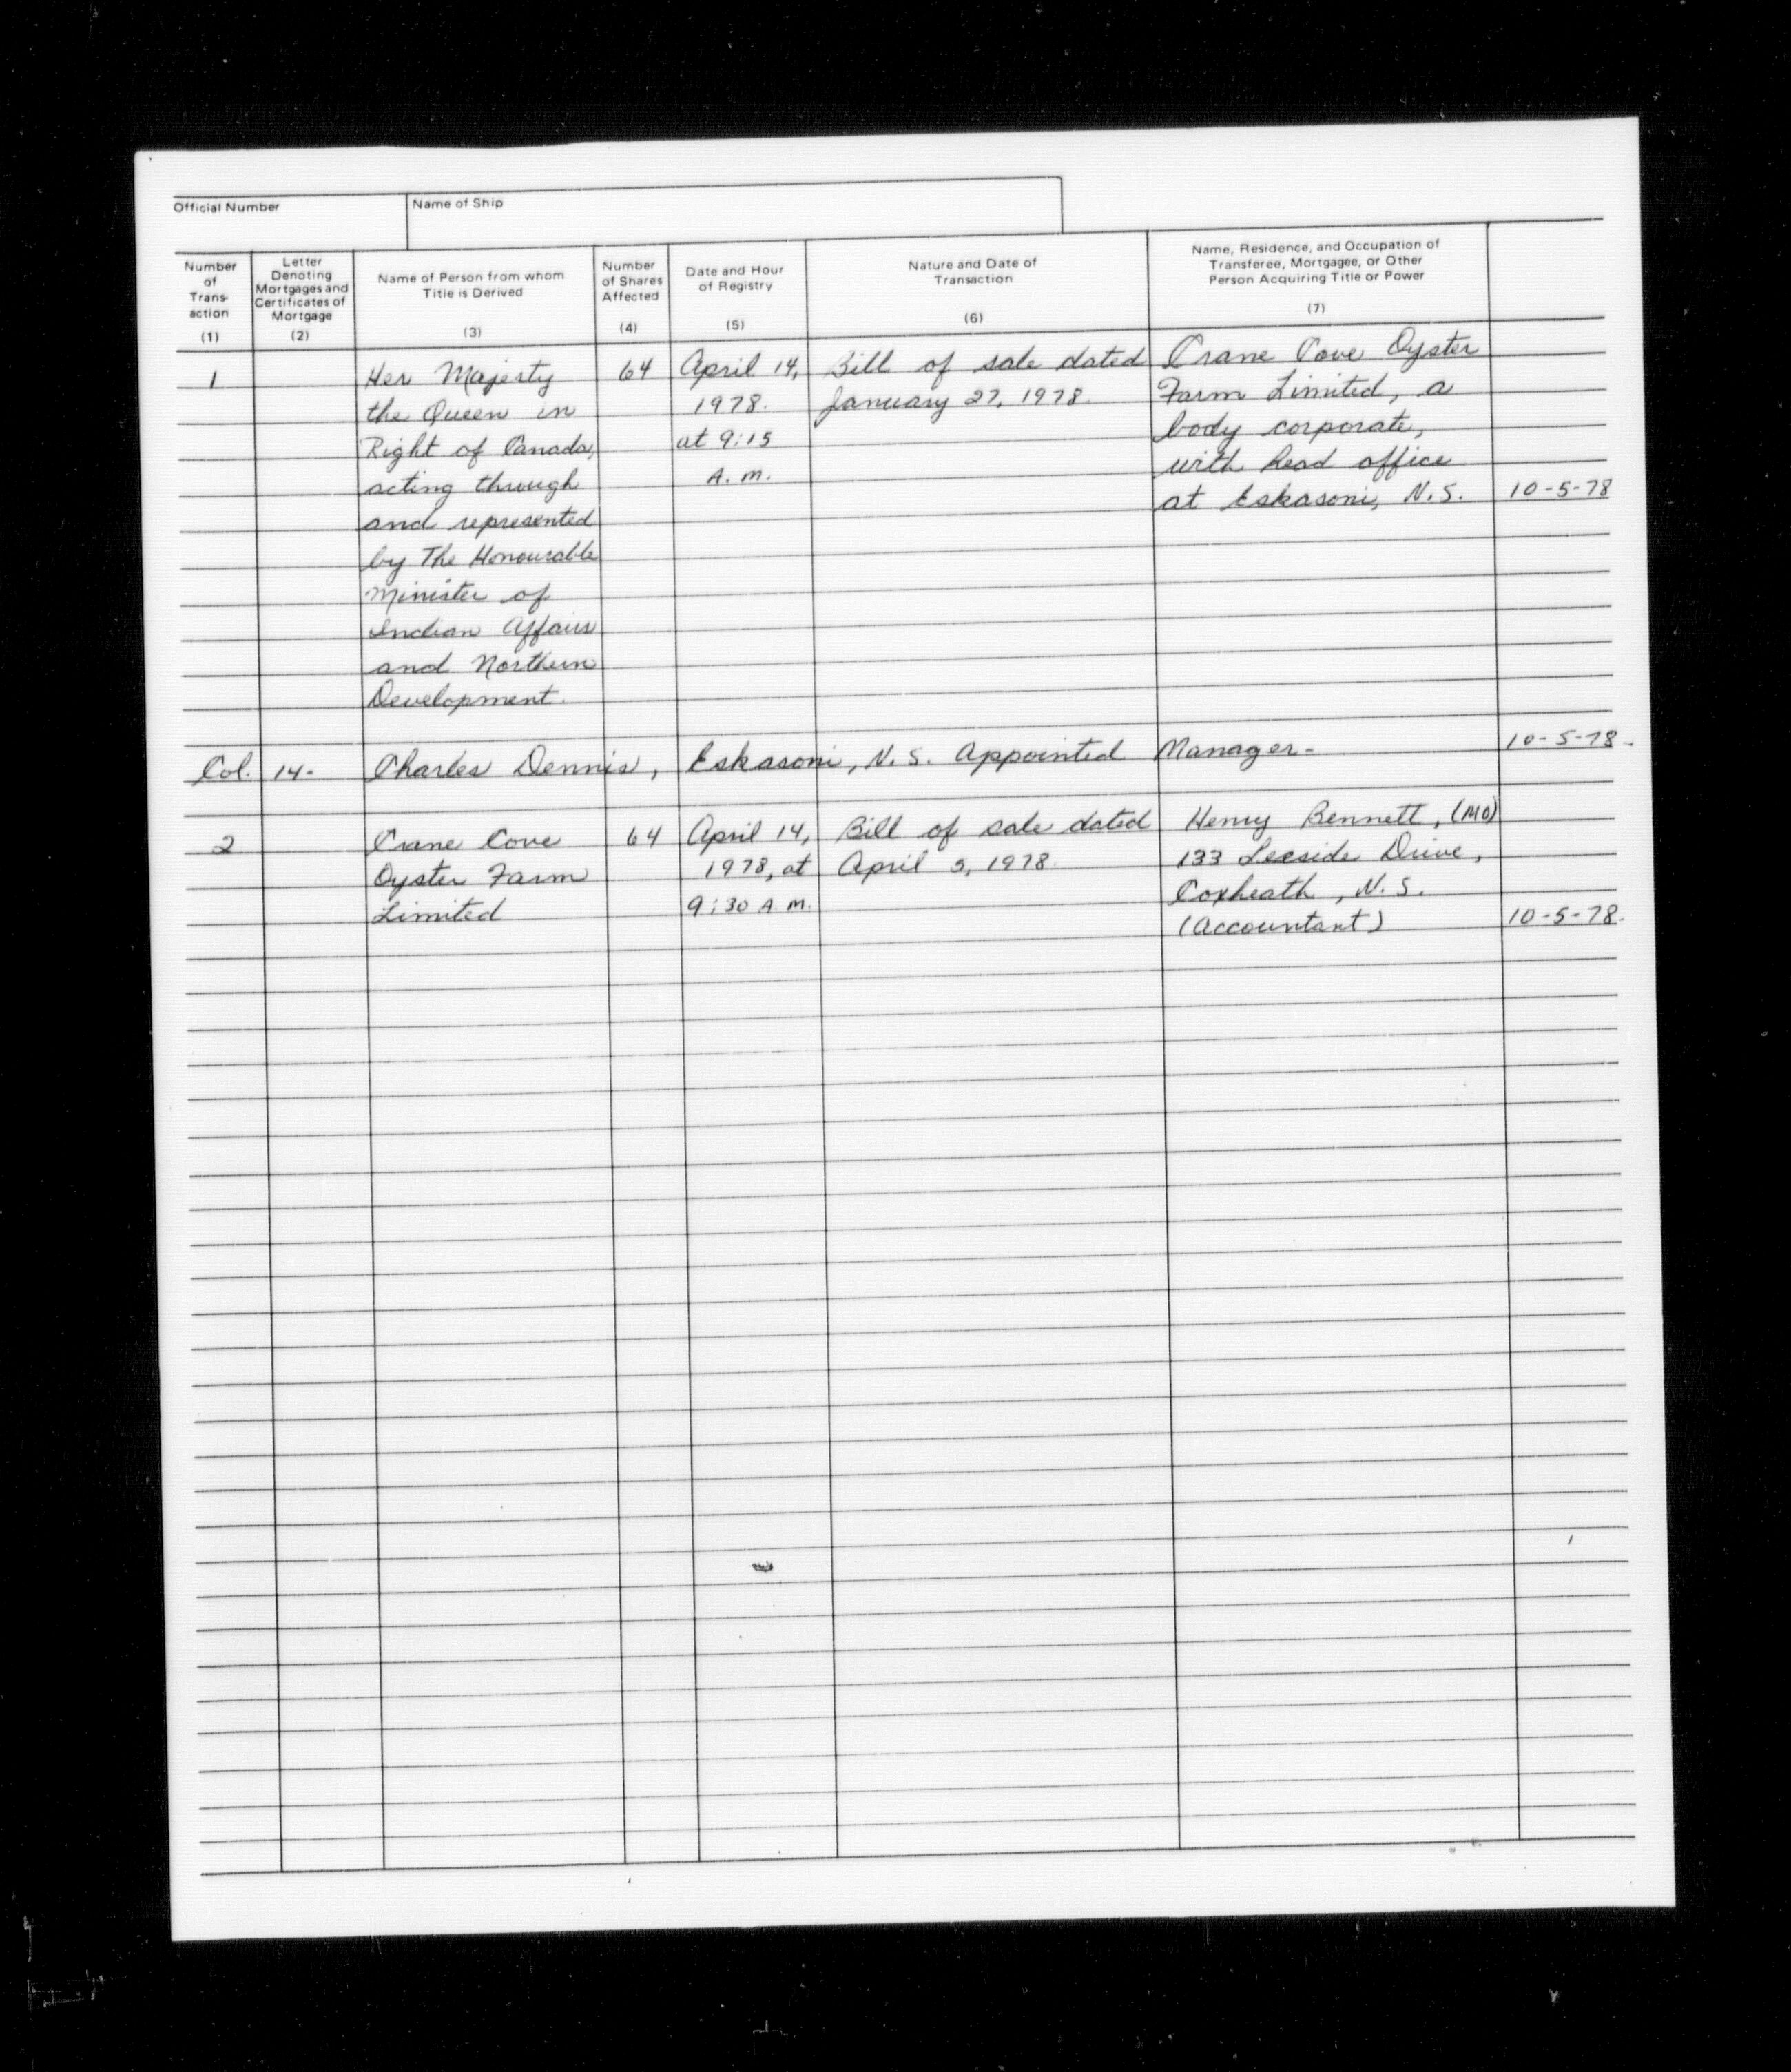 Official Number
Name of Ship
Number of Trans-action (1)
Letter Denoting Mortgages and Certificates of Mortgage (2)
Name of Person from whom Title is Derived (3)
Number of Shares Affected (4)
Date and Hour of Registry (5)
Nature and Date of Transaction (6)
Name, Residence, and Occupation of Transferee, Mortgagee, or Other Person Acquiring Title or Power (7)
1 Her Majesty 64 April 14, Bill of sale dated Crane Cove Oyster
the Queen in 1978. January 27, 1978. Farm Limited, a
Right of Canada, at 9:15 body corporate,
acting through A.M. with head office
and represented at Eskasoni, N.S. 10-5-78
by The Honourable
Minister of
Indian Affairs
and Northern
Development.
Col. 14- Charles Dennis, Eskasoni, N.S. Appointed Manager- 10-5-78-
2 Crane Cove 64 April 14, Bill of sale dated Henry Bennett, (MO)
Oyster Farm 1978, at April 5, 1978. 133 Leeside Drive,
Limited 9:30 A.M. Coxheath, N.S.
(Accountant) 10-5-78.